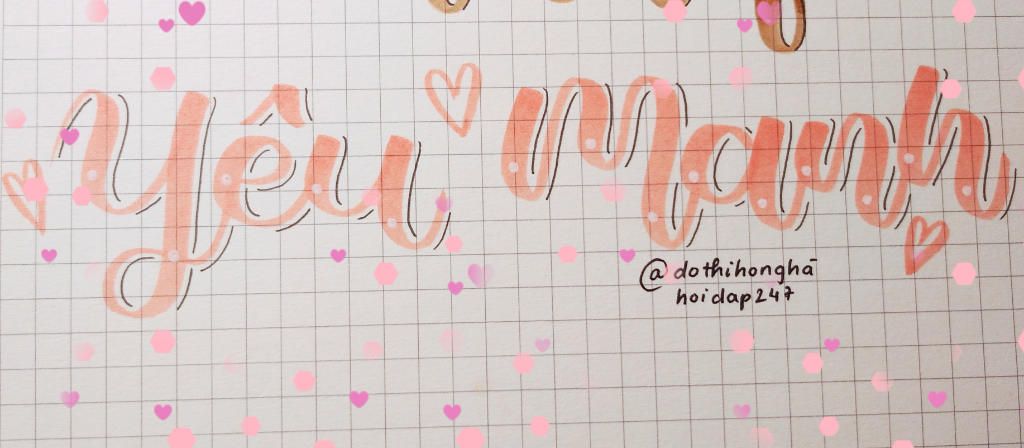 Yêu Manh
@dothihonghā
hoidap247